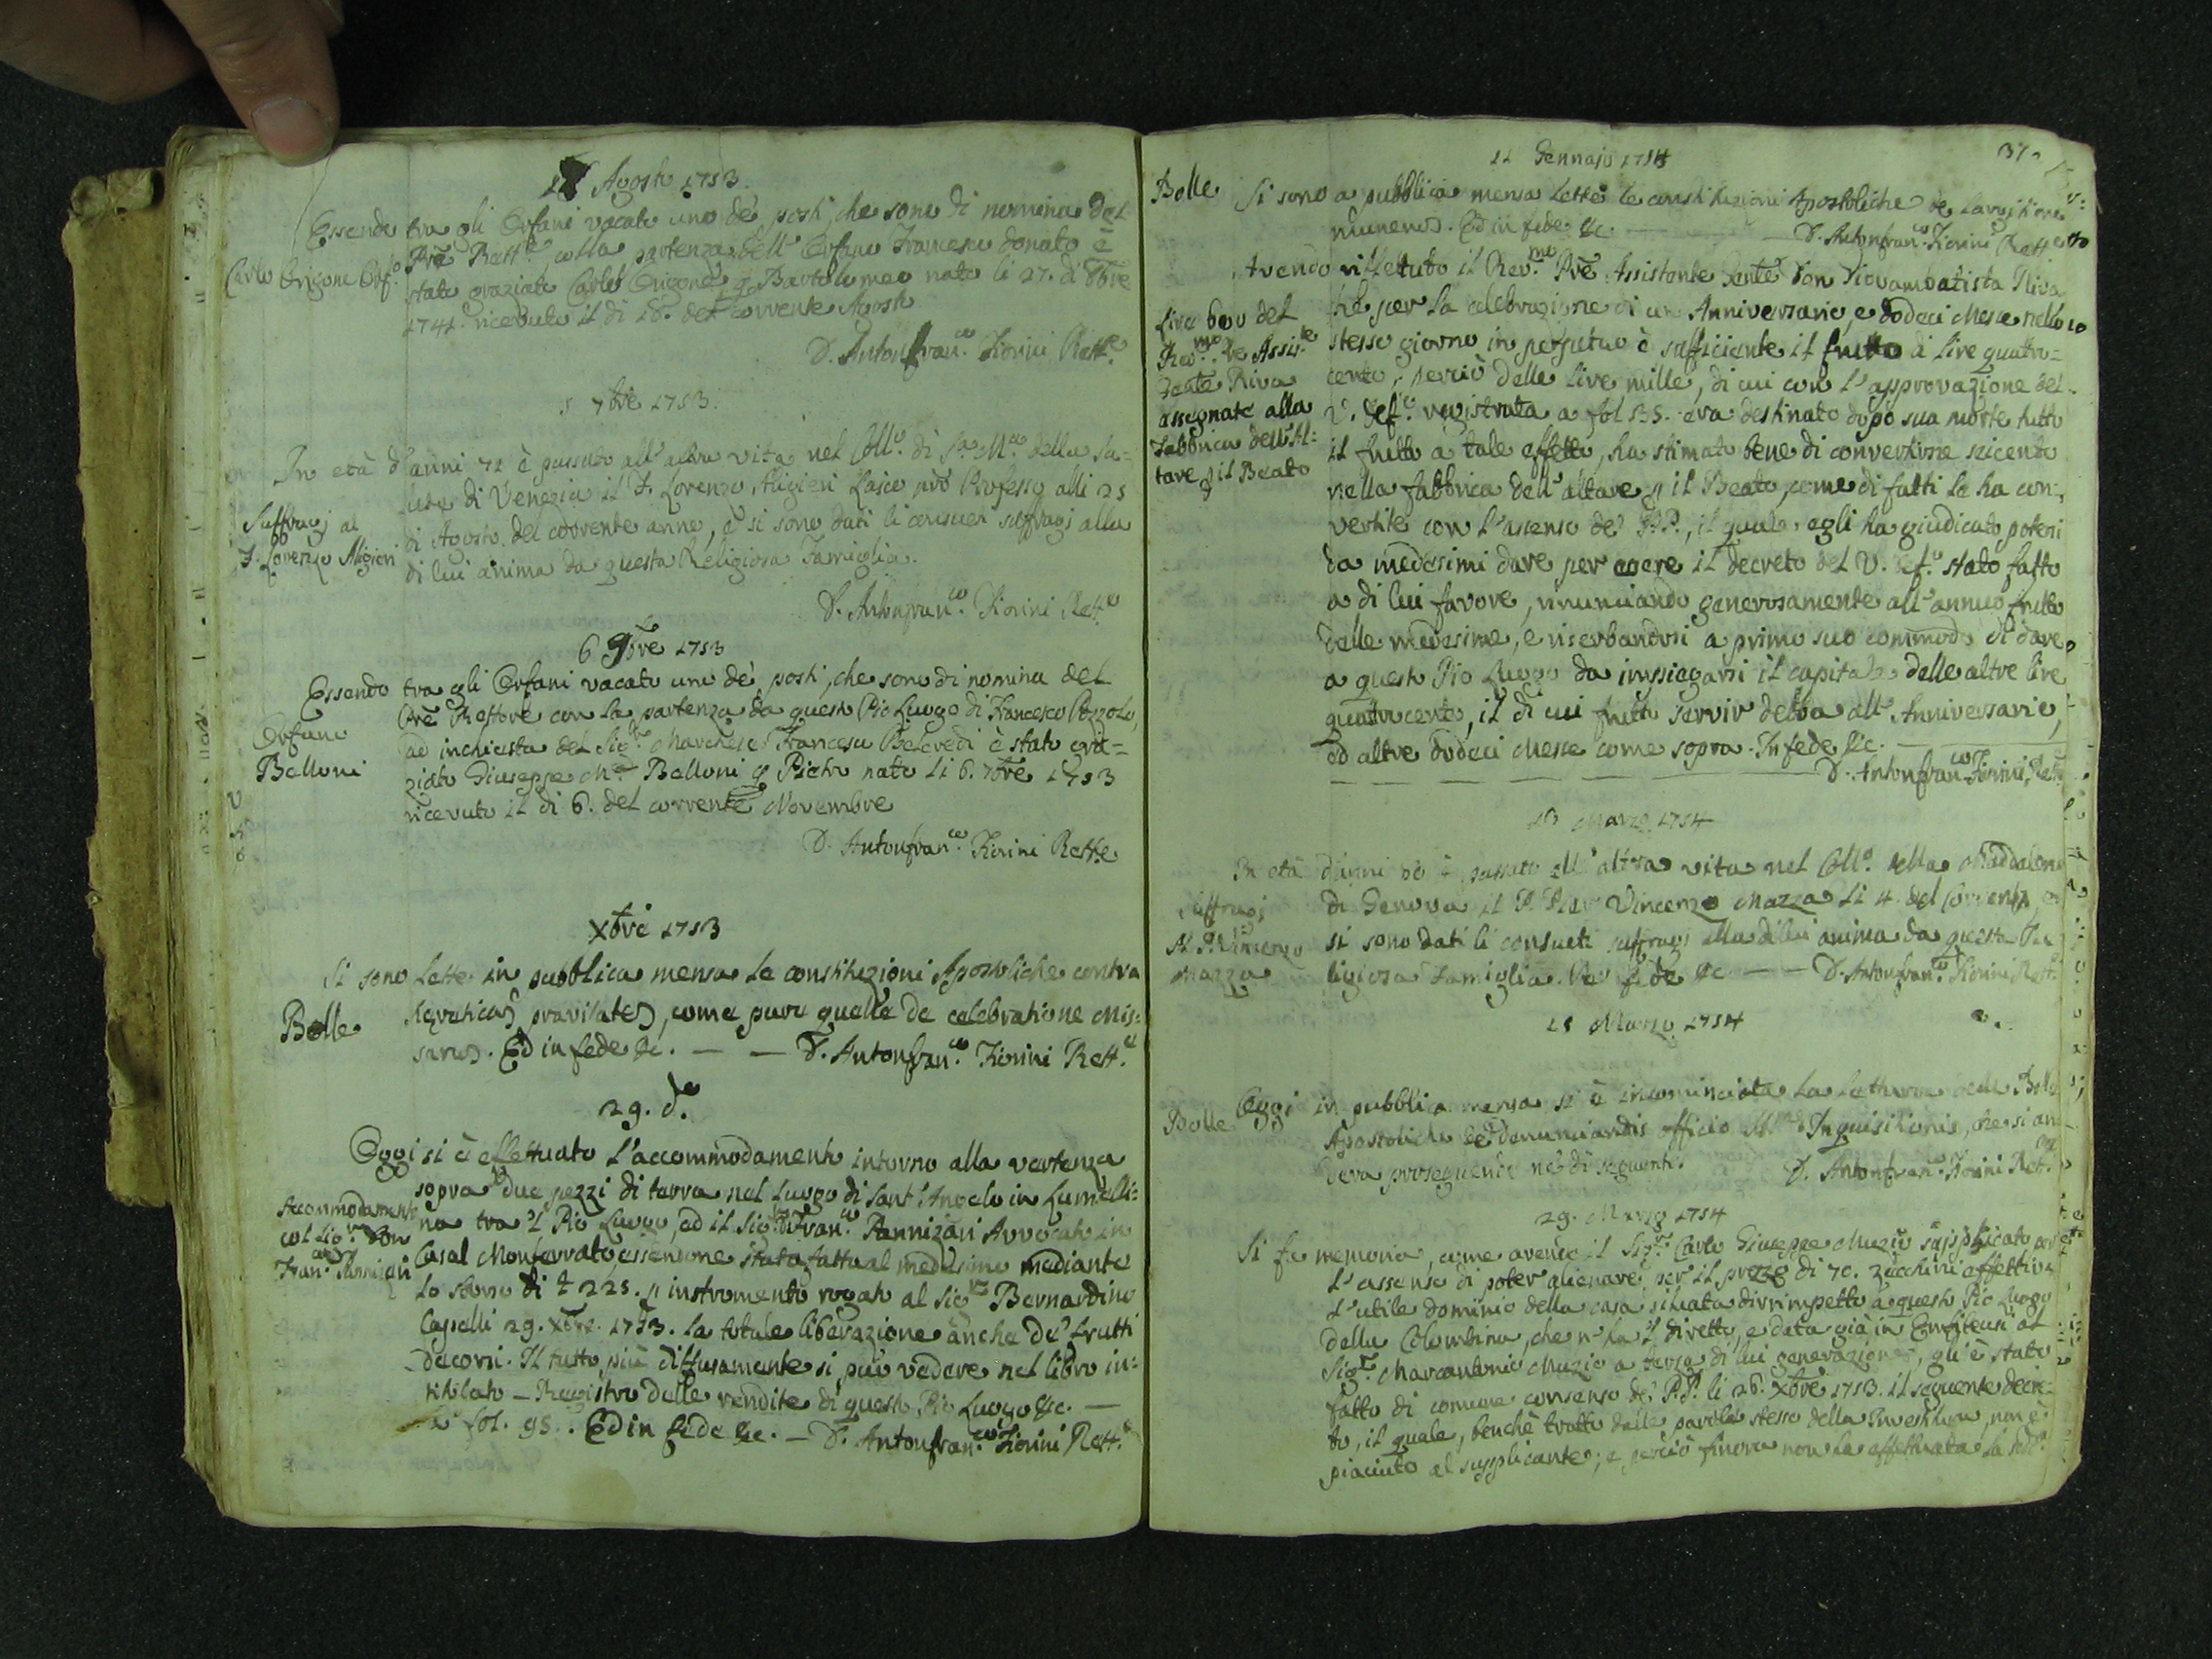 18 Agosto 1753.
Essendo tra gli Orfani vacato uno de' posti, che sono di nomina del
Carlo Origone Orf.o
Pre Rett.re colla partenza dell'Orfano Francesco Donato è
stato graziato Carlo Origone q. Bartolomeo nato li 27. di 8bre
1741. ricevuto il dì 18. del corrente Agosto
D. Antonfran.co Fiorini Rett.e
5 7bre 1753.
In età d'anni 72 è passato all'altra vita nel Coll.o di S.a M.a della Sa=
Suffragj al
F. Lorenzo Aligieri
lute di Venezia il F. Lorenzo Aligieri Laico nrõ Professo alli 25
di Agosto del corrente anno, e si sono dati li consueti suffragj alla
di lui anima da questa Religiosa Famiglia.
D. Antonfran.co Fiorini Rett.e
6 9bre 1753
Essendo tra gli Orfani vacato uno de' posti, che sono di nomina del
Orfano
Belloni
Pre Rettore con la partenza da questo Pio Luogo di Francesco Pozzolo,
ad inchiesta del Sig.r Marchese Francesco Belcredi è stato gra=
ziato Giuseppe M.a Belloni q Pietro nato li 6. 7bre 1743
ricevuto il dì 6. del corrente Novembre
D. Antonfran.co Fiorini Rett.e
Xbre 1753
Si sono lette in pubblica mensa le constituzioni Apostoliche contra
Bolle
hæreticam pravitatem, come pure quella de celebratione Mis:
sarum. Ed in fede &c. — — D. Antonfran.co Fiorini Rett.e
29. d.o
Oggi si è effettuato l'accommodamento intorno alla vertenza
Accommodamento
col Sig.r Don
Fran.co Pannizari
sopra due pezzi di terra nel luogo di Sant'Angelo in Lumelli=
na tra 'l Pio Luogo, ed il Sig.r D. Fran.co Pannizari Avvocato in
Casal Monferrato, essensone stata fatta al medesimo mediante
lo sborso di £ 225. p instromento rogato al Sig.r Bernardino
Capelli 29. Xbre 1753. la totale liberazione anche de' frutti
decorsi. Il tutto più diffusamente si può vedere nel libro in=
titolato — Registro delle vendite di questo Pio Luogo &c. —
a fol. 95.. Ed in fede &c. — D. Antonfran.co Fiorini Rett.e
37.
11 Gennajo 1754
Bolle
Si sono a pubblica mensa lette le constituzioni Apostoliche de largitione
munerum. Ed in fede &c. — D. Antonfran.co Fiorini Rett.e
Avendo riflettuto il Rev.mo Pre Assistente Gente Don Giovambatista Riva
Lire 600 del
Rev.mo Pre Assis.te
Gente Riva
assegnate alla
Fabbrica dell'Al:
tare p il Beato
che per la celebrazione di un Anniversario, e dodeci Messe nello
stesso giorno in perpetuo è sufficiente il frutto di lire quatro=
cento, perciò delle lire mille, di cui con l'approvazione del
V. Def.o registrata a fol 35. era destinato dopo sua morte tutto
il frutto a tale effetto, ha stimato bene di convertirne seicento
nella fabbrica dell'altare p il Beato, come di fatti le ha con=
vertite con l'assenso de' P.P., il quale egli ha giudicato potersi
da medesimi dare per essere il decreto del V. Def.o stato fatto
a di lui favore, rinunciando generosamente all'annuo frutto
delle medesime, e riserbandosi a primo suo commodo di dare
a questo Pio Luogo da impiegarsi il capitale delle altre lire
quatrocento, il di cui frutto servir debba all'Anniversario,
ed altre dodeci Messe come sopra. In fede &c.
D. Antonfran.co Fiorini Rett.e
Marzo 1754
In età d'anni è passato all'altra vita nel Coll.o della Maddalena
Suffragj
Al P. Vincenzo
Mazza
di Genova il P. Pier Vincenzo Mazza li 4 del Corrente, e
si sono dati li consueti suffragj alla di lui anima da questa Re
ligiosa Famiglia. Per fede &c — — D. Antonfran.co Fiorini Rett.e
Marzo 1754
Oggi in pubblica mensa si è incominciata la lettura delle Bolle
Bolle
Apostoliche de denunciandis officio S.mæ Inquisitionis, che si an
derà proseguendo ne' dì seguenti.
D. Antonfran.co Fiorini Ret.e
29. Marzo 1754
Si fa memoria, come avendo il Sig.r Carlo Giuseppe Muzio supplicato per
l'assenso di poter alienare per il prezzo di 70. zecchini effettivi
l'utile dominio della casa situata dirrimpetto a questo Pio Luogo
della Colombina, che n'ha 'l diretto, e data già in Enfiteusi al
Sig.r Marcantonio Muzio a terza di lui generazione, gli è stato
fatto di comune consenso de' P.P. li 26. Xbre 1753. il seguente decre=
to, il quale, benchè tratto dalle parole stesse della Investitura, non è
piaciuto al supplicante; e perciò finora non ha effettuata la